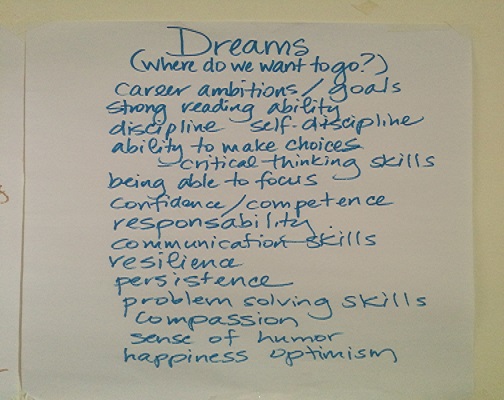 Dreams
(where do we want to go?)
career ambitions/goals
strong reading ability
discipline self-discipline
ability to make choices
critical-thinking skills
being able to focus
confidence/competence
responsability
communication skills
resilience
persistence
problem solving skills
compassion
sense of humor
happiness optimism